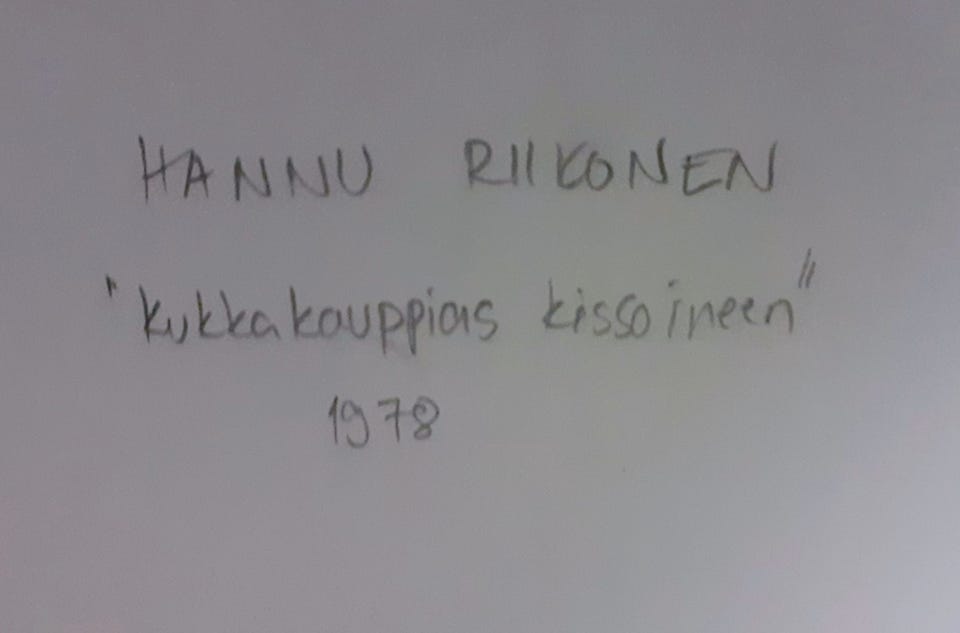 HANNU RIIKONEN
"kukkakauppias kissoineen"
1978